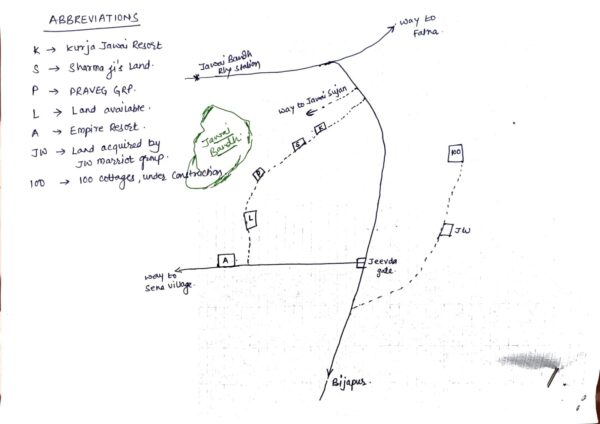 ABBREVIATIONS
K → Kurja Jawai Resort
S → Sharma ji's Land.
P → PRAVEG GRP.
L → Land available.
A → Empire Resort.
JW → Land acquired by
JW marriot group.
100 → 100 cottages, under construction
way to
Falna.
Jawai Bandh
Rly station
way to Jawai Sujan
Jawai
Bandh
K
S
P
100
L
JW
A
Jeevda
gate.
way to
Sena village.
Bijapur.